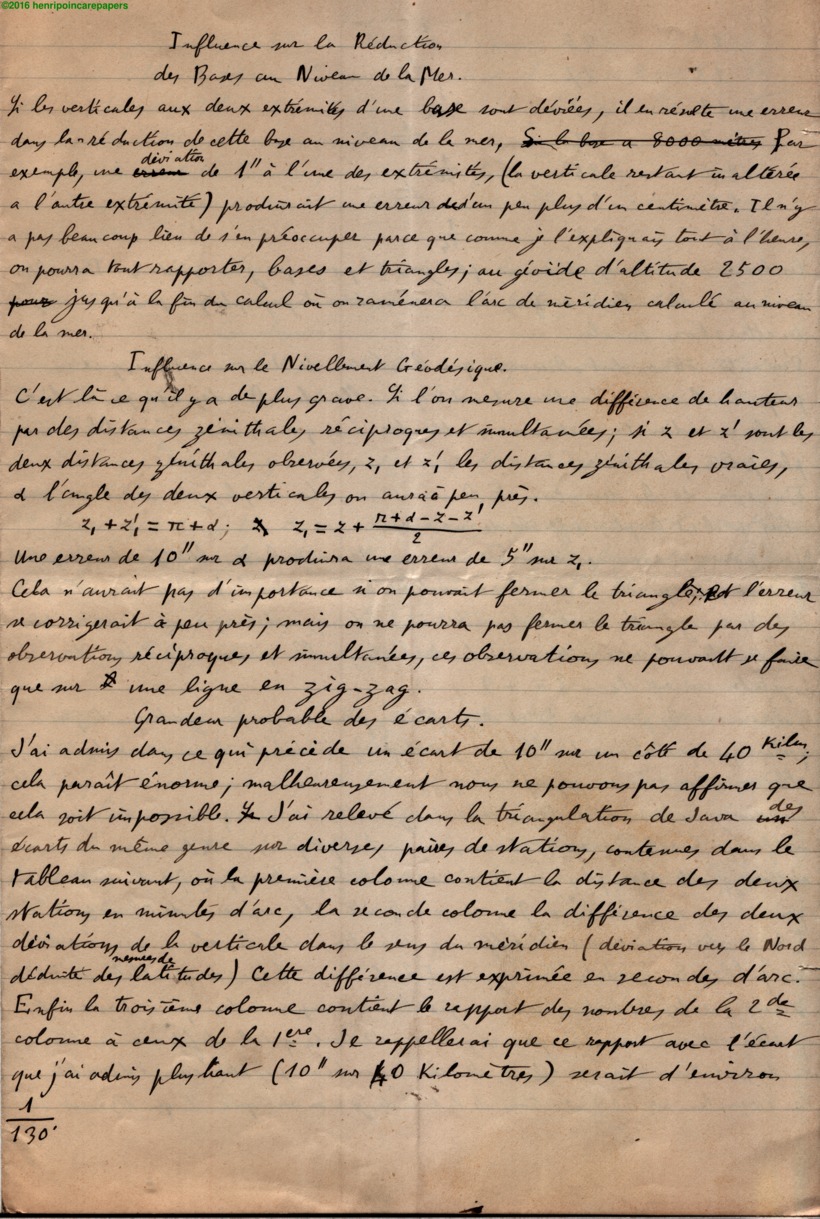 ©2016 henripoincarepapers
Influence sur la Réduction
des Bases au Niveau de la Mer.
Si les verticales aux deux extrémités d'une base sont déviées, il en résulte une erreur
dans la réduction de cette base au niveau de la mer, Si la base a 8000 mètres Par
exemple, une erreur déviation de 1" à l'une des extrémités, (la verticale restant inaltérée
a l'autre extrémité) produirait une erreur d'un peu plus d'un centimètre. Il n'y
a pas beaucoup lieu de s'en préoccuper parce que comme je l'expliquais tout à l'heure,
on pourra tout rapporter, bases et triangles, au géoide d'altitude 2500
pour jusqu'à la fin du calcul où on ramènera l'arc de méridien calculé au niveau
de la mer.
Influence sur le Nivellement Géodésique.
C'est là ce qu'il y a de plus grave. Si l'on mesure une différence de hauteur
par des distances zénithales réciproques et simultanées; si z et z' sont les
deux distances zénithales observées, z₁ et z'₁ les distances zénithales vraies,
α l'angle des deux verticales on aura à peu près.
z₁ + z'₁ = π + α ; z₁ = z + (π + α - z - z')/2
Une erreur de 10" sur α produira une erreur de 5" sur z₁.
Cela n'aurait pas d'importance si on pouvait fermer le triangle; et l'erreur
se corrigerait à peu près; mais on ne pourra pas fermer le triangle par des
observations réciproques et simultanées, ces observations ne pouvant se faire
que sur une ligne en zig-zag.
Grandeur probable des écarts.
J'ai admis dans ce qui précède un écart de 10" sur un côté de 40 Kilm;
cela paraît énorme; malheureusement nous ne pouvons pas affirmer que
cela soit impossible. J'ai relevé dans la triangulation de Java un des
écarts du même genre sur diverses paires de stations, contenues dans le
tableau suivant, où la première colonne contient la distance des deux
stations en minutes d'arc, la seconde colonne la différence des deux
déviations de la verticale dans le sens du méridien (déviation vers le Nord
déduite des mesures de latitudes) Cette différence est exprimée en secondes d'arc.
Enfin la troisième colonne contient le rapport des nombres de la 2de
colonne à ceux de la 1ère. Je rappellerai que ce rapport avec l'écart
que j'ai admis plus haut (10" sur 40 Kilomètres) serait d'environ
1/130.